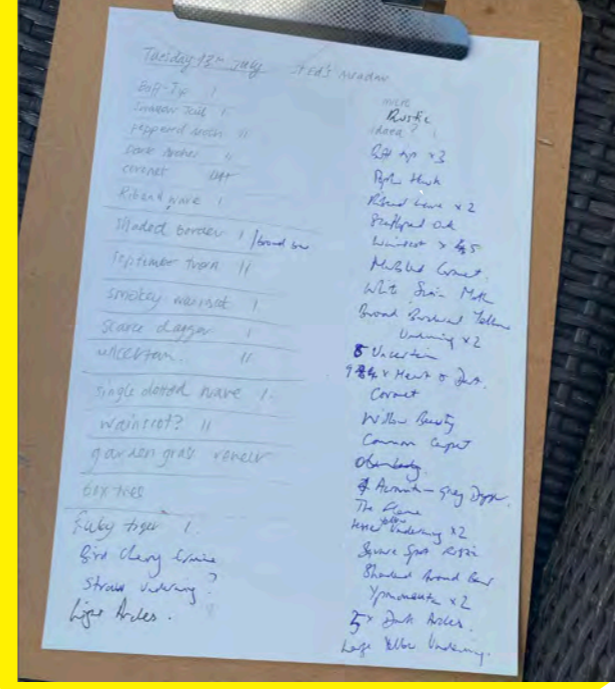 Tuesday 13th July Ted's Meadow
Buff-Tip 1
Swallow Tail 1
peppered moth 11
Dark Arches
coronet
Riband wave 1
Shaded border 1 / broad bar
September thorn 11
smokey wainscot 1
Scarce dagger 1
uncertain 11
single dotted wave 1
wainscot? 11
garden grass veneer
box tree
Ruby tiger 1
Bird Cherry Ermine
Straw Underwing?
Light Arches.
micro
Rustic
idaea? 1
Buff tip x3
Poplar Hawk
Riband Wave x2
Scalloped Oak
Wainscot x 5
Marbled Coronet.
White Satin Moth
Broad Bordered Yellow
Underwing x2
5 Uncertain
x Heart & Dart.
Coronet
Willow Beauty
Common Carpet
- Grey Dagger.
The Flame
yellow
Underwing x2
Square Spot Rustic
Shaded Broad Bar
Yponomeuta x2
5x Dark Arches.
Large Yellow Underwing.